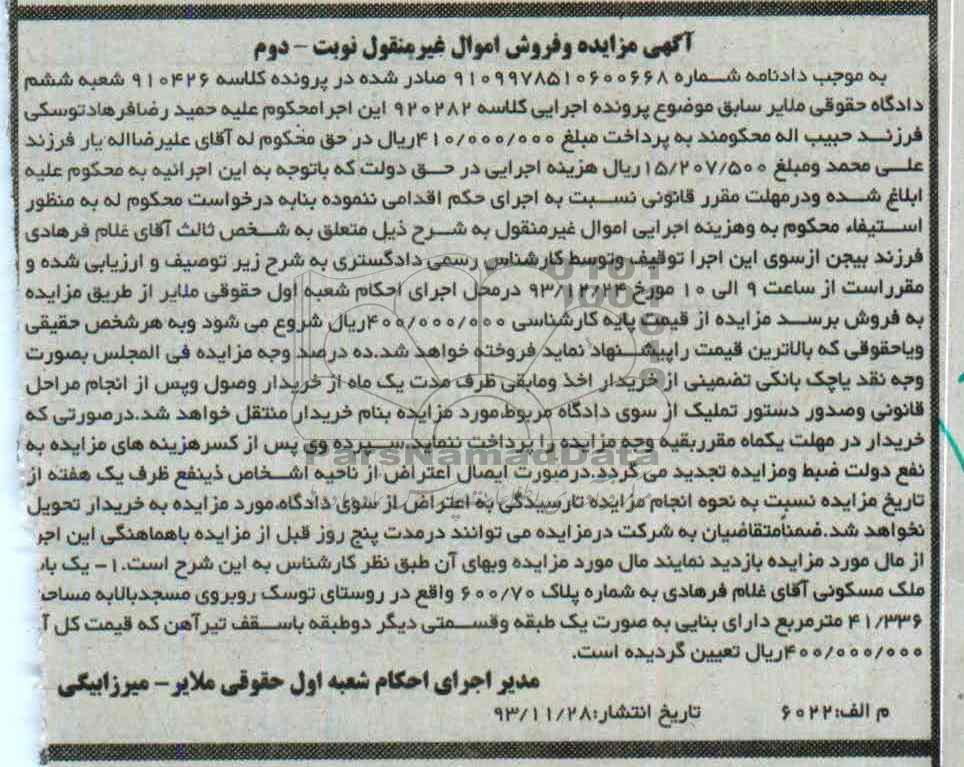 آگهی مزایده وفروش اموال غیرمنقول نوبت - دوم
به موجب دادنامه شماره ۹۱۰۹۹۷۸۵۱۰۶۰۰۶۶۸ صادر شده در پرونده کلاسه ۹۱۰۴۲۶ شعبه ششم
دادگاه حقوقی ملایر سابق موضوع پرونده اجرایی کلاسه ۹۲۰۲۸۲ این اجرامحکوم علیه حمید رضافرهادتوسکی
فرزند حبیب اله محکومند به پرداخت مبلغ ۴۱۰/۰۰۰/۰۰۰ریال در حق محکوم له آقای علیرضااله یار فرزند
علی محمد ومبلغ ۱۵/۲۰۷/۵۰۰ریال هزینه اجرایی در حق دولت که باتوجه به این اجرائیه به محکوم علیه
ابلاغ شده ودرمهلت مقرر قانونی نسبت به اجرای حکم اقدامی ننموده بنابه درخواست محکوم له به منظور
استیفاء محکوم به وهزینه اجرایی اموال غیرمنقول به شرح ذیل متعلق به شخص ثالث آقای غلام فرهادی
فرزند بیجن ازسوی این اجرا توقیف وتوسط کارشناس رسمی دادگستری به شرح زیر توصیف و ارزیابی شده و
مقرراست از ساعت ۹ الی ۱۰ مورخ ۹۳/۱۲/۲۴ درمحل اجرای احکام شعبه اول حقوقی ملایر از طریق مزایده
به فروش برسد مزایده از قیمت پایه کارشناسی ۴۰۰/۰۰۰/۰۰۰ریال شروع می شود وبه هرشخص حقیقی
ویاحقوقی که بالاترین قیمت راپیشنهاد نماید فروخته خواهد شد.ده درصد وجه مزایده فی المجلس بصورت
وجه نقد یاچک بانکی تضمینی از خریدار اخذ ومابقی ظرف مدت یک ماه از خریدار وصول وپس از انجام مراحل
قانونی وصدور دستور تملیک از سوی دادگاه مربوط،مورد مزایده بنام خریدار منتقل خواهد شد.درصورتی که
خریدار در مهلت یکماه مقرربقیه وجه مزایده را پرداخت ننماید.سپرده وی پس از کسرهزینه های مزایده به
نفع دولت ضبط ومزایده تجدید می گردد.درصورت ایصال اعتراض از ناحیه اشخاص ذینفع ظرف یک هفته از
تاریخ مزایده نسبت به نحوه انجام مزایده تارسیدگی به اعتراض از سوی دادگاه،مورد مزایده به خریدار تحویل
نخواهد شد.ضمنامتقاضیان به شرکت درمزایده می توانند درمدت پنج روز قبل از مزایده باهماهنگی این اجر
از مال مورد مزایده بازدید نمایند مال مورد مزایده وبهای آن طبق نظر کارشناس به این شرح است.۱- یک باب
ملک مسکونی آقای غلام فرهادی به شماره پلاک ۶۰۰/۷۰ واقع در روستای توسک روبروی مسجدبالابه مساحت
۴۱/۳۳۶ مترمربع دارای بنایی به صورت یک طبقه وقسمتی دیگر دوطبقه باسقف تیرآهن که قیمت کل آ
۴۰۰/۰۰۰/۰۰۰ریال تعیین گردیده است.
مدیر اجرای احکام شعبه اول حقوقی ملایر- میرزابیگی
م الف:۶۰۲۲ تاریخ انتشار:۹۳/۱۱/۲۸
ParsNamadData